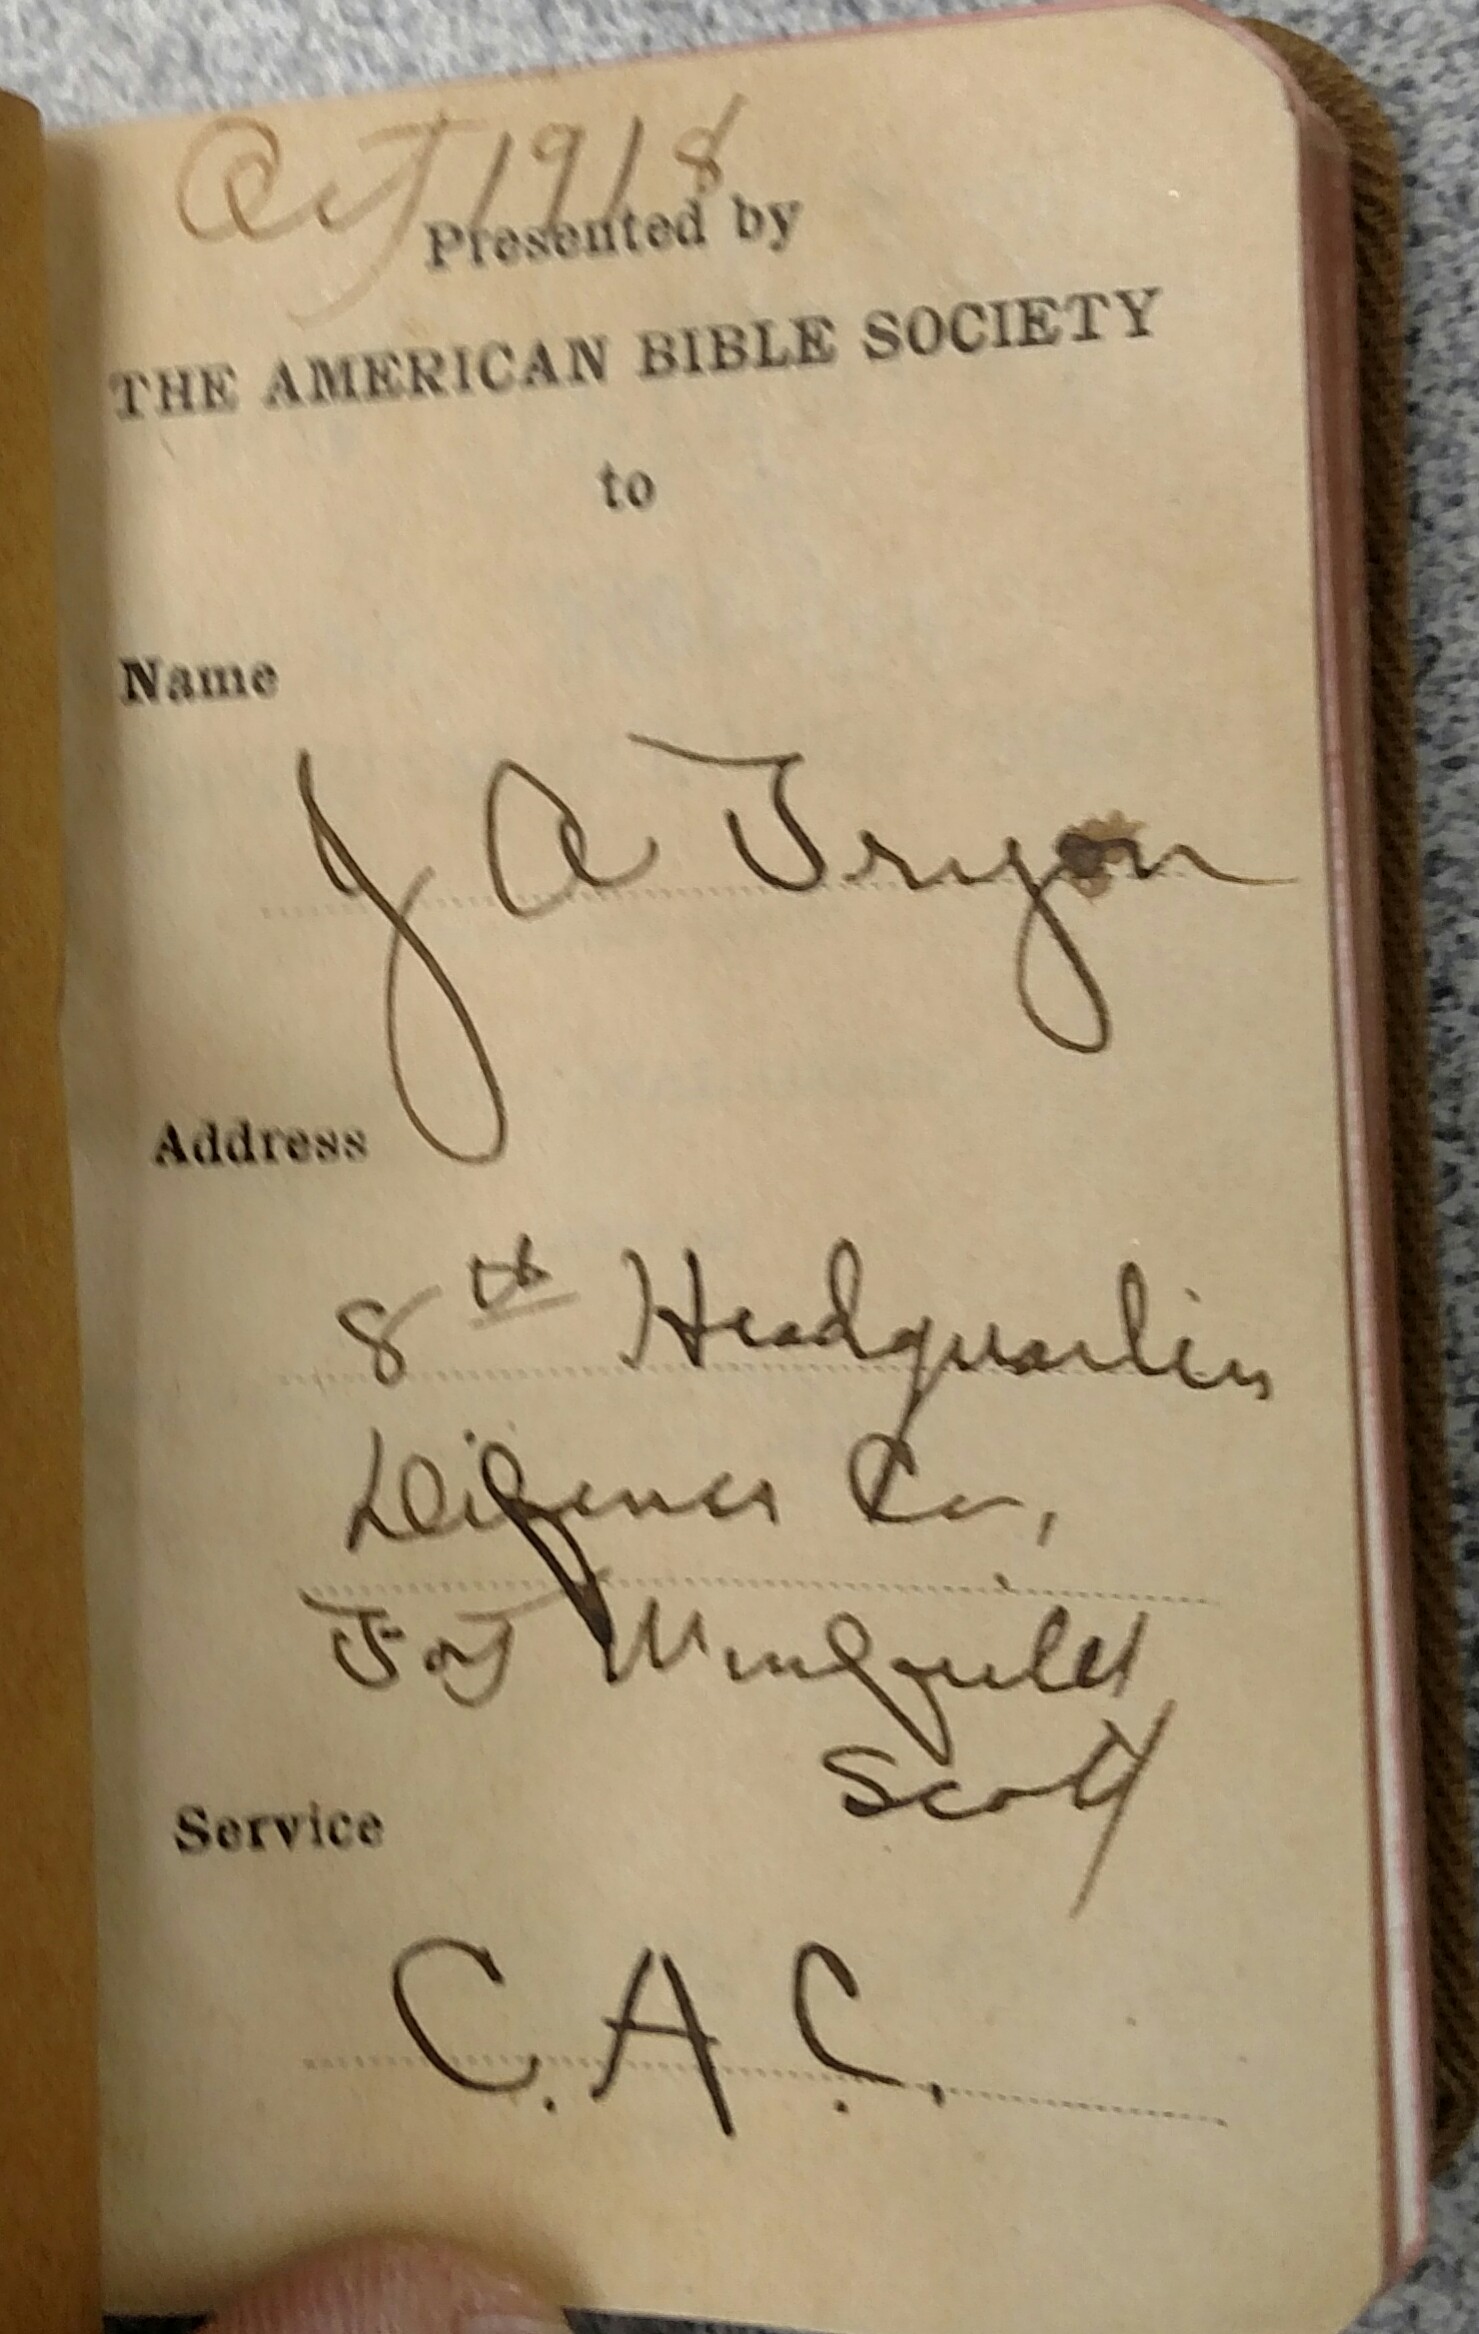 Oct 1918
Presented by
THE AMERICAN BIBLE SOCIETY
to
Name
J A Tryon
Address
8th Headquarters
Co,
Fort Winfield
Scott
Service
C. A. C.